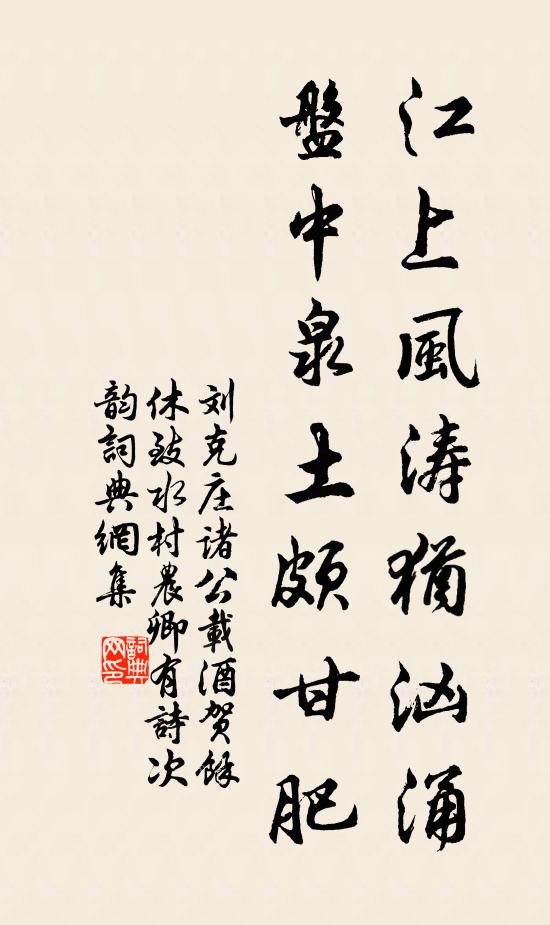 江上風涛猶汹涌
盤中泉土頗甘肥
刘克庄诸公載酒賀餘
休致水村農卿有詩次
韵詞典網集
詞典
网印